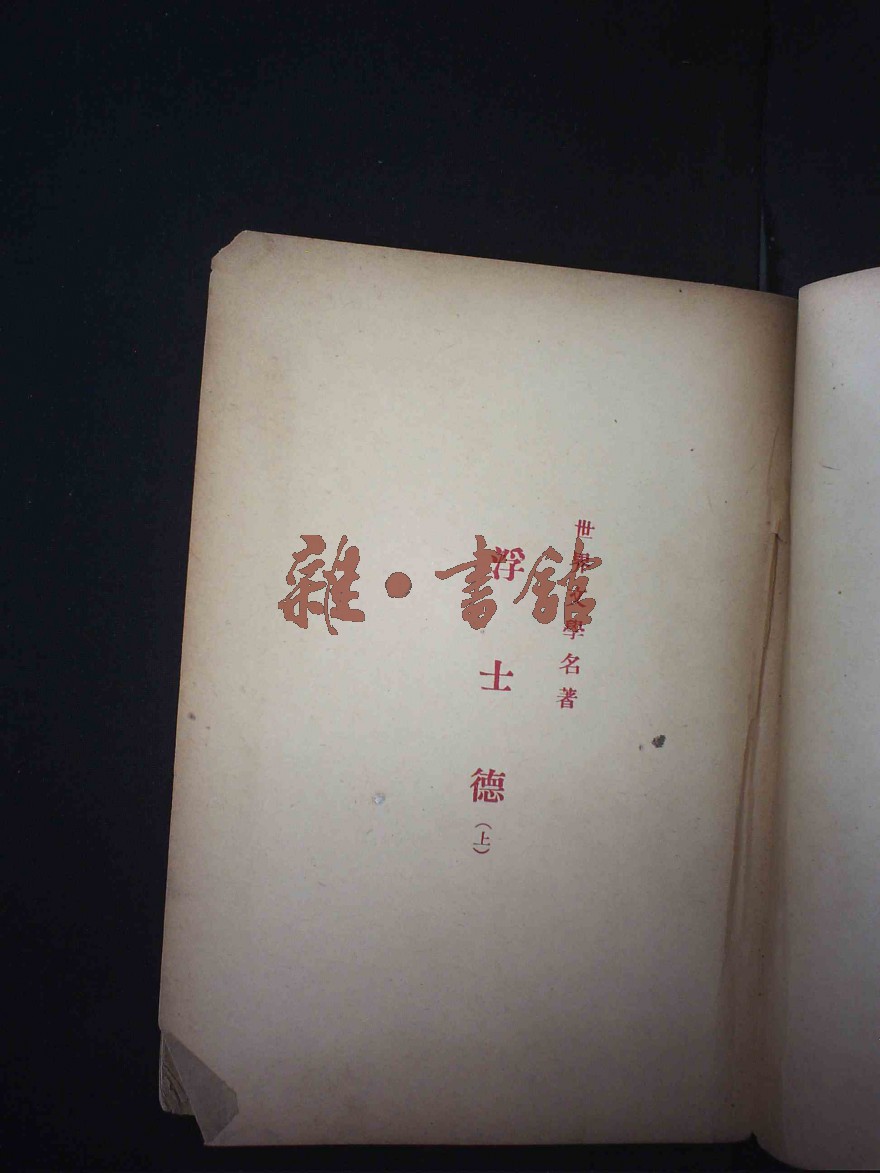 世界文學名著
浮士德
(上)
雜·書館